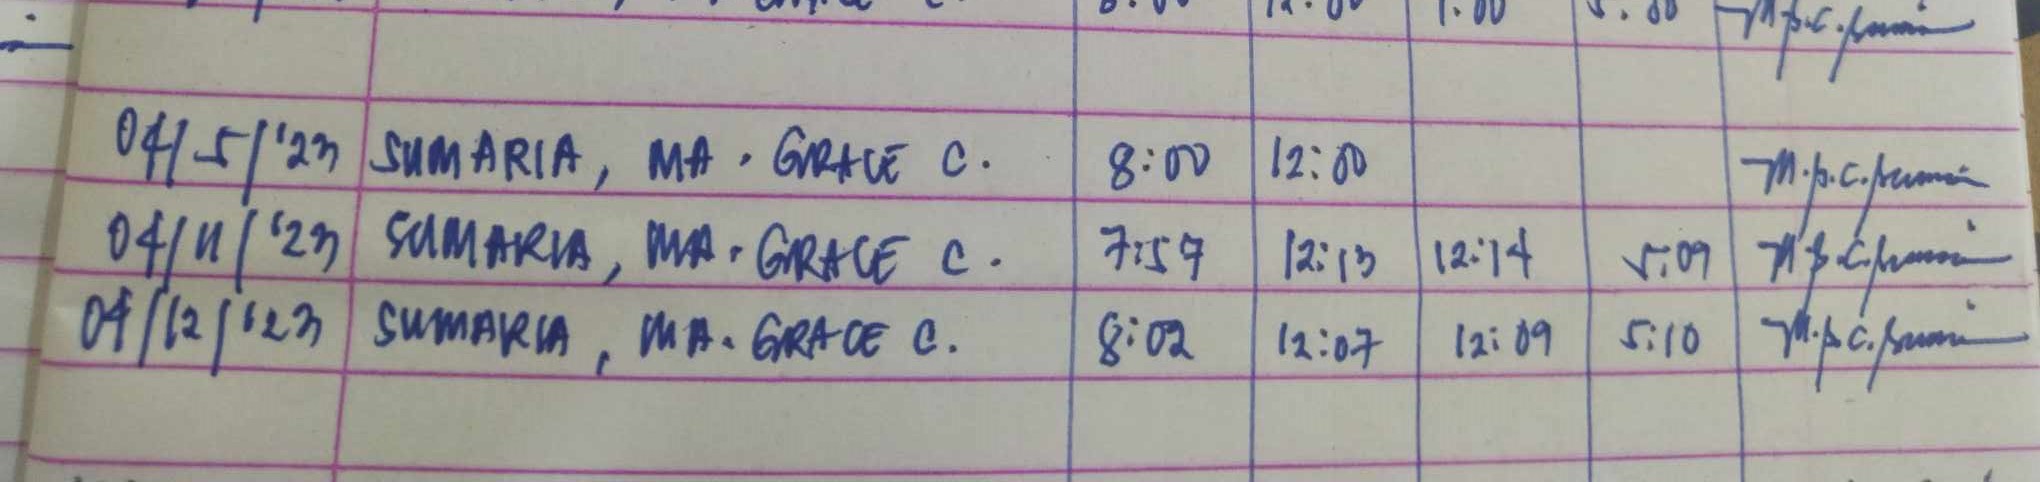 8:00 12:00 1:00 5:00
04/5/'23 SUMARIA, MA. GRACE C. 8:00 12:00
04/11/'23 SUMARIA, MA. GRACE C. 7:57 12:13 12:14 5:09
04/12/'23 SUMARIA, MA. GRACE C. 8:02 12:07 12:09 5:10